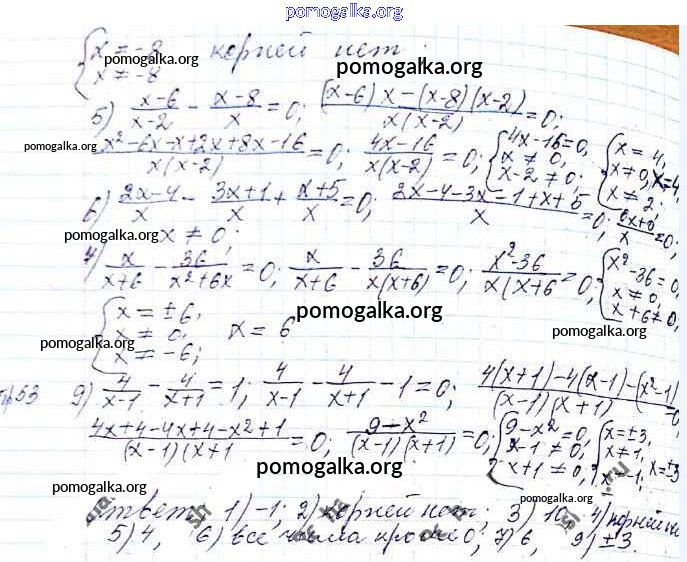 pomogalka.org
{ x = -8 корней нет.
x = -8
pomogalka.org
pomogalka.org
5) (x-6)/(x-2) - (x-8)/x = 0; ((x-6)x-(x-8)(x-2))/(x(x-2)) = 0;
pomogalka.org
(4x-16)/(x(x-2)) = 0; { 4x-16=0, x ≠ 0, x-2 ≠ 0. { x = 4, x ≠ 0, x ≠ 2; x=4
6) (2x-4)/x - (3x+1)/x + (x+5)/x = 0; (2x-4-3x-1+x+5)/x = 0; (0x+0)/x = 0;
pomogalka.org
x ≠ 0;
7) x/(x+6) - 36/(x²+6x) = 0; x/(x+6) - 36/(x(x+6)) = 0; (x²-36)/(x(x+6 = 0; { x²-36=0, x ≠ 0, x+6 ≠ 0,
{ x = ±6, x ≠ 0, x = -6; x = 6
pomogalka.org
pomogalka.org
pomogalka.org
53 9) 4/(x-1) - 4/(x+1) = 1; 4/(x-1) - 4/(x+1) - 1 = 0; (4(x+1)-4(x-1)-(x²-1))/((x-1)(x+1)) = 0
(4x+4-4x+4-x2+1)/((x-1)(x+1 = 0; (9-x²)/((x-1)(x+1)) = 0; { 9-x²=0, x-1 ≠ 0, x+1 ≠ 0, { x=±3, x≠1, x=-1, x=±3
pomogalka.org
pomogalka.org
Ответ: 1) -1; 2) корней нет; 3) 10 4) корней не
pomogalka.org
5) 4, 6) все числа кроме 0; 7) 6, 9) ±3.